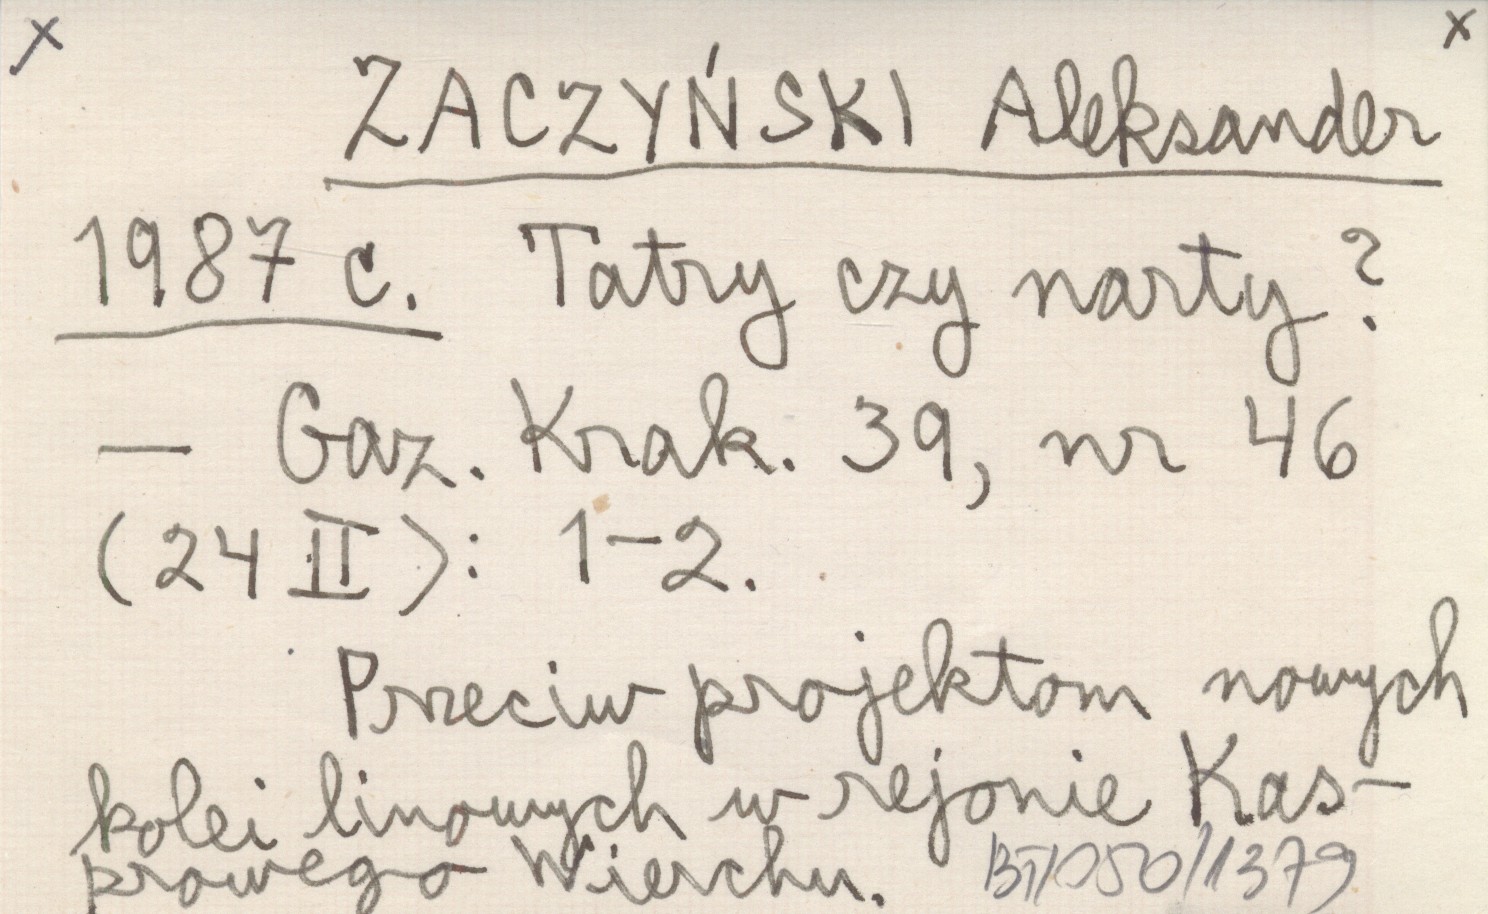 x x
ZACZYŃSKI Aleksander
1987 c. Tatry czy narty?
— Gaz. Krak. 39, nr 46
(24 II): 1-2.
Przeciw projektom nowych
kolei linowych w rejonie Kas-
prowego Wierchu. BT/050/1379